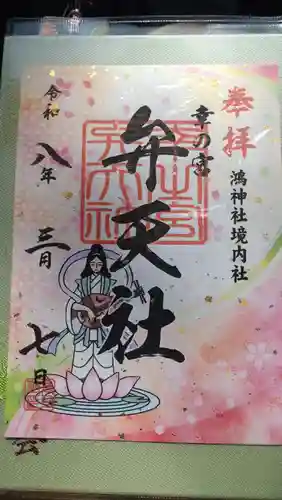 奉拝
鴻神社境内社
幸の宮
弁天社
令和
八年
三月
七日